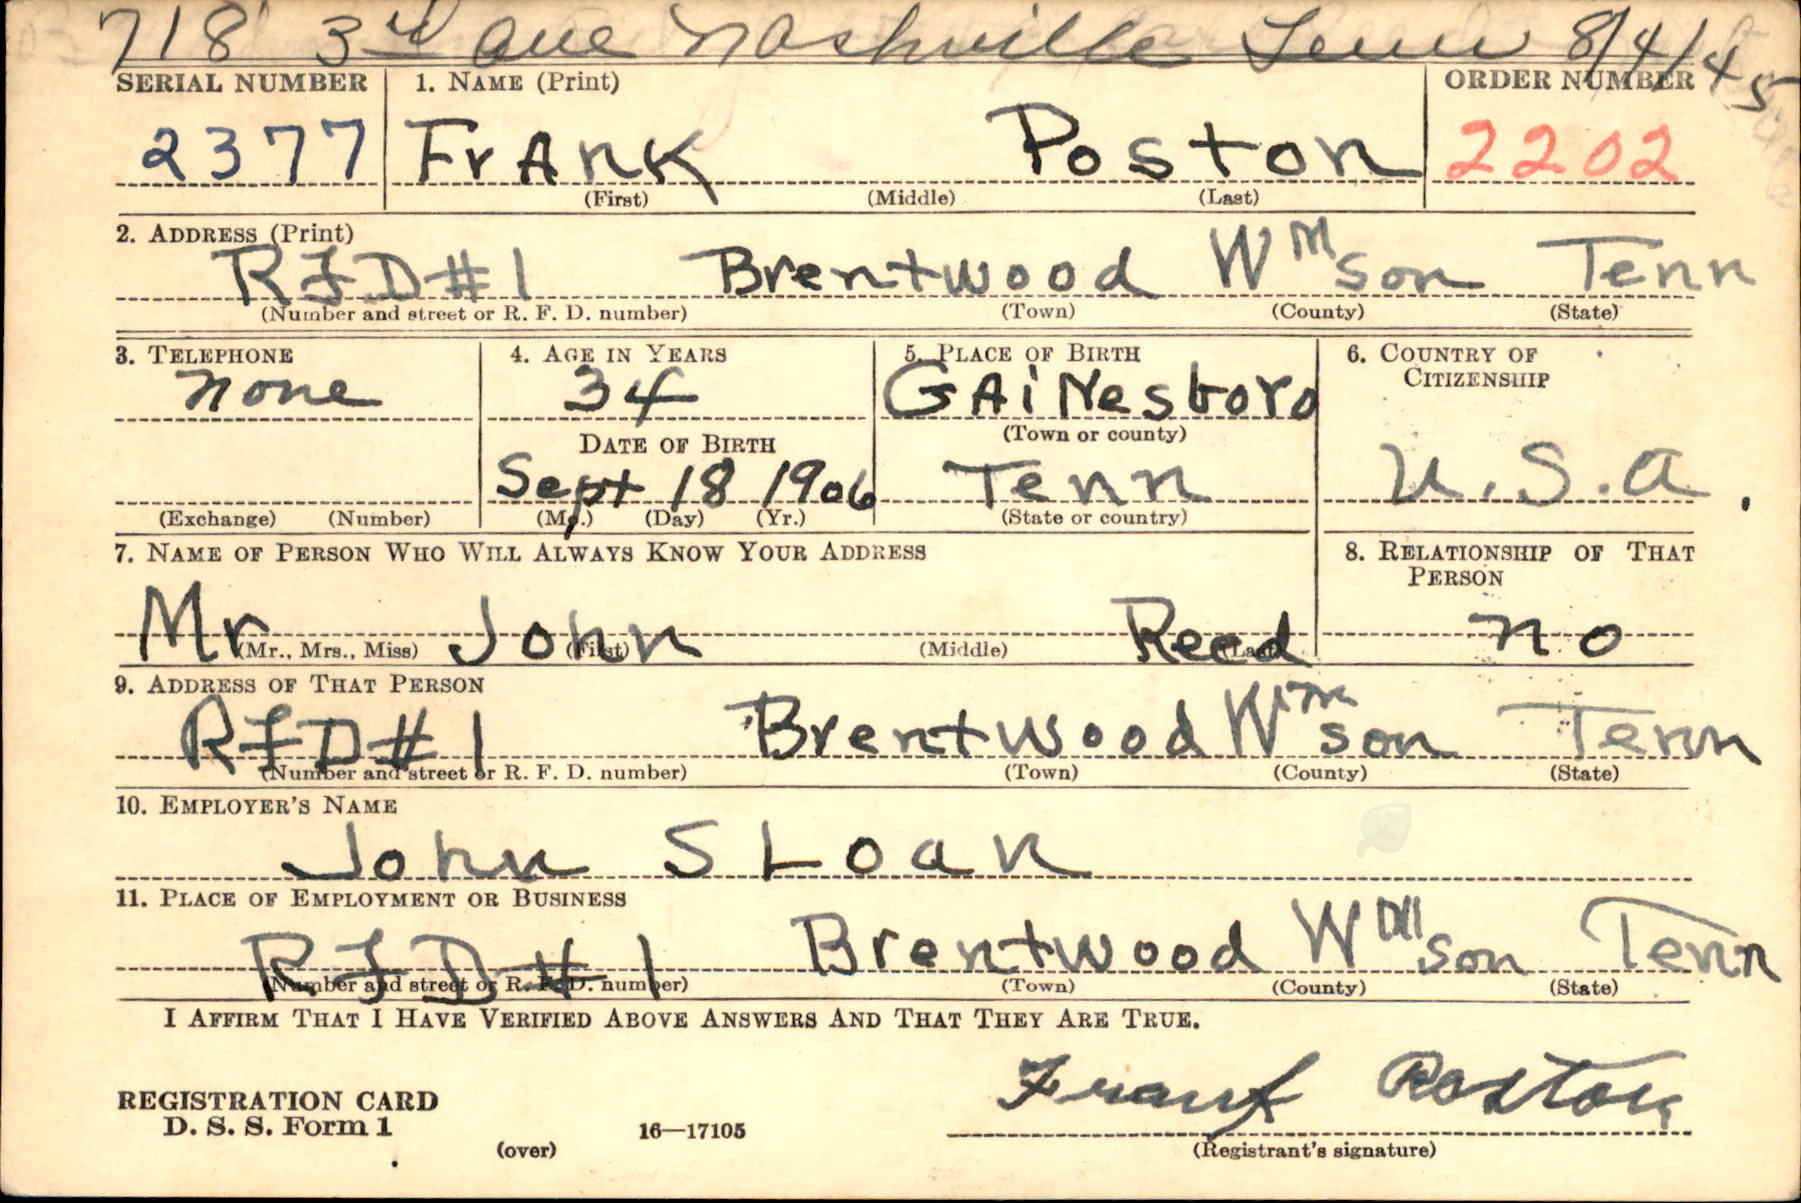 718 3rd Ave Nashville Tenn 8/4/45
SERIAL NUMBER 1. NAME (Print) ORDER NUMBER
2377 FrAnK Poston 2202
(First) (Middle) (Last)
2. ADDRESS (Print)
RFD#1 Brentwood Wmson Tenn
(Number and street or R. F. D. number) (Town) (County) (State)
3. TELEPHONE 4. AGE IN YEARS 5. PLACE OF BIRTH 6. COUNTRY OF CITIZENSHIP
none 34 GAiNesboro
DATE OF BIRTH (Town or county)
Sept 18 1906 Tenn U.S.A.
(Exchange) (Number) (Mo.) (Day) (Yr.) (State or country)
7. NAME OF PERSON WHO WILL ALWAYS KNOW YOUR ADDRESS 8. RELATIONSHIP OF THAT PERSON
Mr John Reed no
(Mr., Mrs., Miss) (First) (Middle) (Last)
9. ADDRESS OF THAT PERSON
RFD#1 Brentwood Wmson Tenn
(Number and street or R. F. D. number) (Town) (County) (State)
10. EMPLOYER'S NAME
John SLoan
11. PLACE OF EMPLOYMENT OR BUSINESS
RFD#1 Brentwood Wmson Tenn
(Number and street or R. F. D. number) (Town) (County) (State)
I AFFIRM THAT I HAVE VERIFIED ABOVE ANSWERS AND THAT THEY ARE TRUE.
Frank Poston
REGISTRATION CARD
D. S. S. Form 1 16—17105
(over) (Registrant's signature)